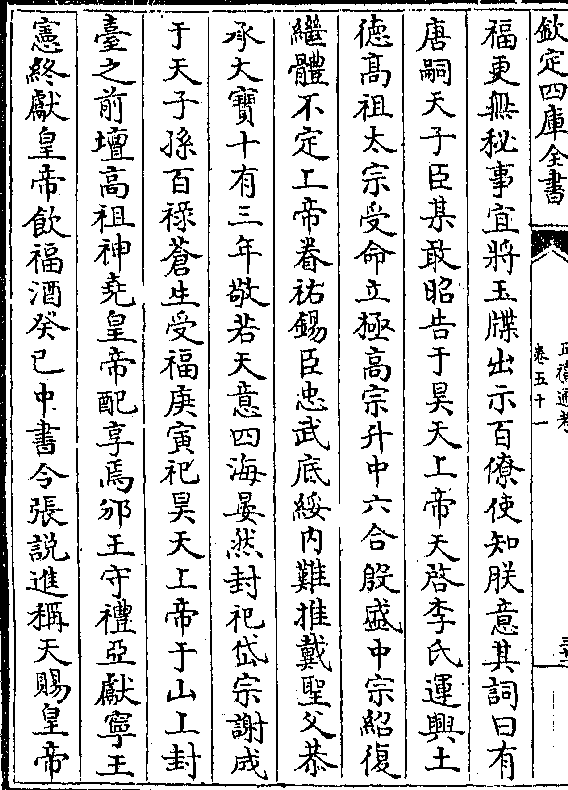 欽定四庫全書
五禮通考
卷五十一
福更無秘事宜將玉牒出示百僚使知朕意其詞曰有
唐嗣天子臣某敢昭告于昊天上帝天啓李氏運興土
徳髙祖太宗受命立極高宗升中六合殷盛中宗紹復
繼體不定上帝眷祐錫臣忠武底綏内難推戴聖父恭
承大寶十有三年敬若天意四海晏然封祀岱宗謝成
于天子孫百禄蒼生受福庚寅祀昊天上帝于山上封
臺之前壇高祖神堯皇帝配享焉邠王守禮亞獻寧王
憲終獻皇帝飲福酒癸巳中書令張説進稱天賜皇帝